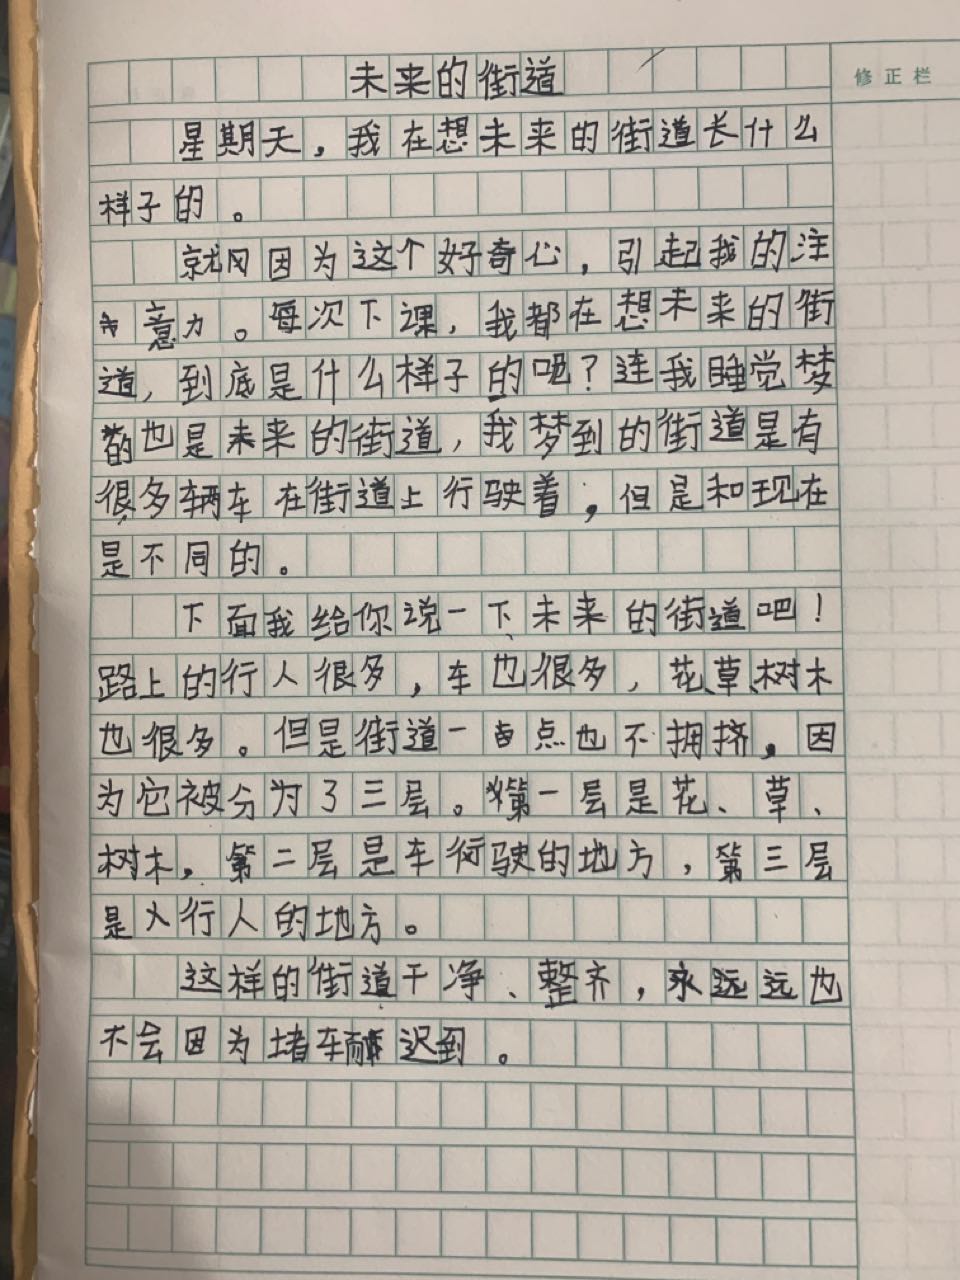 未来的街道
修正栏
星期天，我在想未来的街道长什么
样子的。
就因为这个好奇心，引起我的注
意力。每次下课，我都在想未来的街
道，到底是什么样子的呢？连我睡觉梦
的也是未来的街道，我梦到的街道是有
很多辆车在街道上行驶着，但是和现在
是不同的。
下面我给你说一下未来的街道吧！
路上的行人很多，车也很多，花、草、树木
也很多。但是街道一点也不拥挤，因
为它被分为了三层。第一层是花、草、
树木，第二层是车行驶的地方，第三层
是行人的地方。
这样的街道干净、整齐，永远远也
不会因为堵车而迟到。